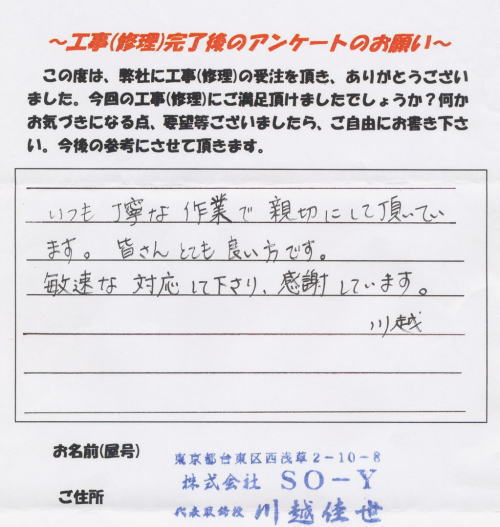 ～工事(修理)完了後のアンケートのお願い～
この度は、弊社に工事(修理)の受注を頂き、ありがとうござい
ました。今回の工事(修理)にご満足頂けましたでしょうか？何か
お気づきになる点、要望等ございましたら、ご自由にお書き下さ
い。今後の参考にさせて頂きます。
いつも 丁寧な 作業で 親切にして頂いてい
ます。 皆さん とても 良い方です。
敏速な 対応して下さり、感謝しています。
川越
お名前(屋号)
東京都台東区西浅草2-10-8
株式会社 SO-Y
ご住所
代表取締役 川越佳世